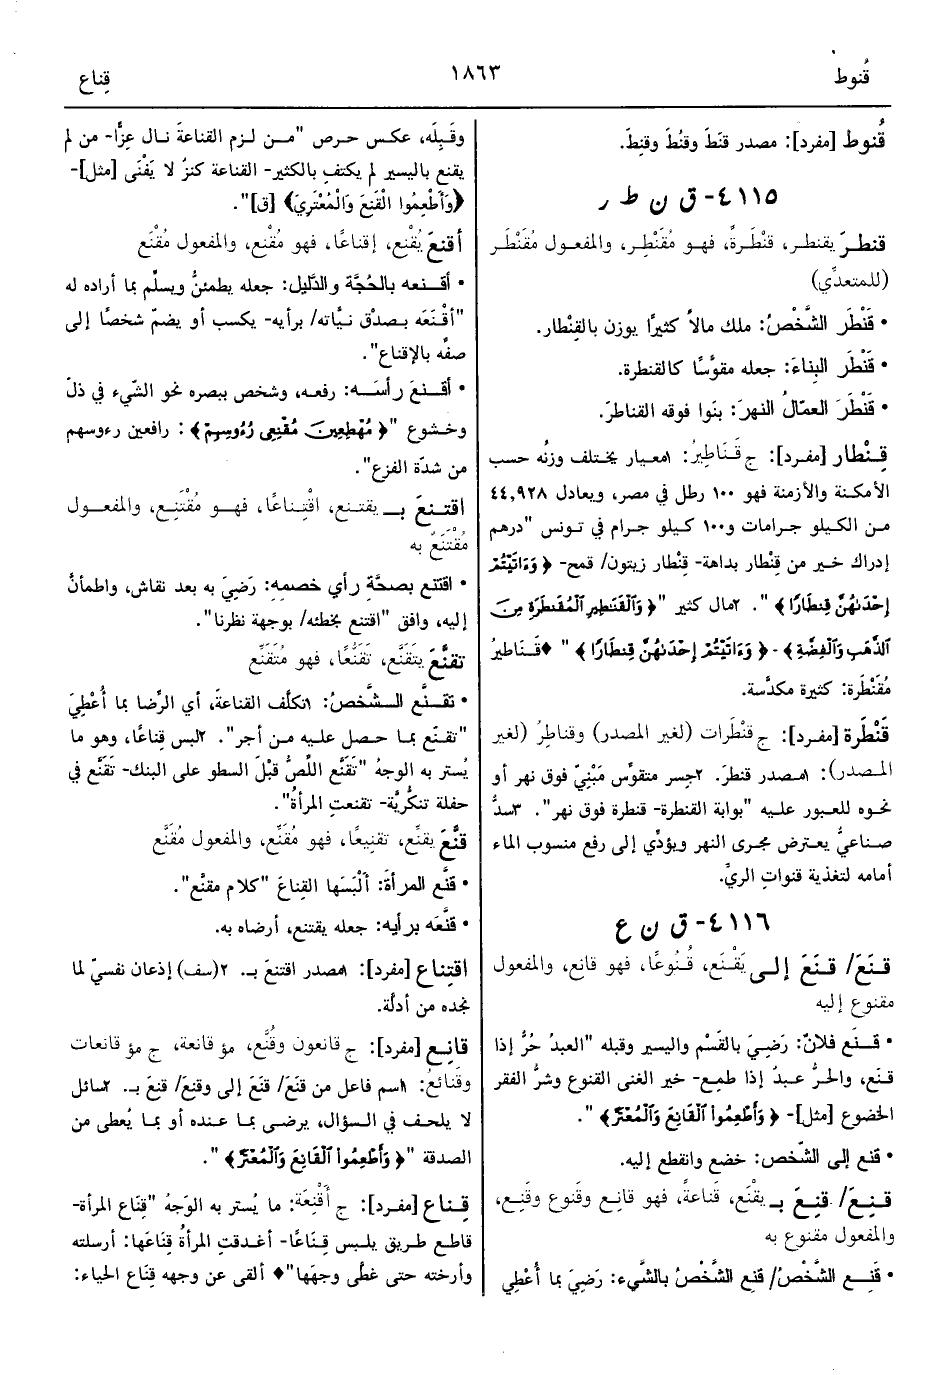 قُنوط
١٨٦٣
قِناع
قُنوط [مفرد]: مصدر قنَطَ وقنُطَ وقنِطَ.
٤١١٥- ق ن ط ر
قنطرَ يقنطر، قنْطرةً، فهو مُقَنْطِر، والمفعول مُقَنْطَر
(للمتعدِّي)
• قَنْطَر الشَّخْصُ: ملك مالاً كثيرًا يوزن بالقِنْطار.
• قَنْطَر البِناءَ: جعله مقوَّسًا كالقنطرة.
• قَنْطَرَ العمّالُ النهرَ: بنَوا فوقه القناطرَ.
قِنْطار [مفرد]: ج قَنَاطِيرُ: ١معيار يختلف وزنُه حسب
الأمكنة والأزمنة فهو ١٠٠ رطل في مصر، ويعادل ٤٤,٩٢٨
من الكيلو جرامات و١٠٠ كيلو جرام في تونس "درهم
إدراك خير من قِنْطار بداهة- قِنْطار زيتون/ قمح- ﴿وَءَاتَيْتُمْ
إِحْدَىٰهُنَّ قِنطَارًا﴾". ٢مال كثير "﴿وَٱلْقَنَٰطِيرِ ٱلْمُقَنطَرَةِ مِنَ
ٱلذَّهَبِ وَٱلْفِضَّةِ﴾-﴿وَءَاتَيْتُمْ إِحْدَىٰهُنَّ قِنطَارًا﴾" ♦قَناطيرُ
مُقَنْطَرة: كثيرة مكدَّسة.
قَنْطَرة [مفرد]: ج قنْطَرات (لغير المصدر) وقناطِرُ (لغير
المصدر): ١مصدر قنطرَ. ٢جسر متقوِّس مَبْنِيّ فوق نهر أو
نحوه للعبور عليه "بوابة القنطرة- قنطرة فوق نهر". ٣سدٌّ
صناعيٌّ يعترض مجرى النهر ويؤدِّي إلى رفع منسوب الماء
أمامه لتغذية قنواتِ الريّ.
٤١١٦- ق ن ع
قنَعَ/ قنَعَ إلى يَقْنَع، قُنُوعًا، فهو قانِع، والمفعول
مقنوع إليه
• قـنَع فلانٌ: رَضِيَ بالقَسْم واليسير وقبله "العبدُ حُرٌّ إذا
قنَع، والحرُّ عبدٌ إذا طمِع- خير الغنى القنوع وشرُّ الفقر
الخضوع [مثل]- ﴿وَأَطْعِمُوا۟ ٱلْقَانِعَ وَٱلْمُعْتَرَّ﴾".
• قنَع إلى الشّخص: خضع وانقطع إليه.
قنِعَ/ قنِعَ بـ يقْنَع، قَناعةً، فهو قانِع وقَنوع وقَنِع،
والمفعول مقنوع به
• قَنِـع الشَّخْصُ/ قنِع الشَّخْصُ بالشَّيء: رَضِيَ بما أُعْطِي
وقَبِلَه، عكس حرص "من لزم القناعةَ نال عِزًّا- من لم
يقنع باليسير لم يكتفِ بالكثير- القناعة كنزٌ لا يَفْنَى [مثل]-
﴿وَأَطْعِمُوا الْقَنِعَ وَالْمُعْتَرِيَ﴾ [ق]".
أقنعَ يُقْنع، إقناعًا، فهو مُقْنِع، والمفعول مُقْنَع
• أقـنعه بالحُجَّة والدَّليل: جعله يطمئنُّ ويسلِّم بما أراده له
"أقْنَعَه بصدْق نيَّاته/ برأيه- يكسب أو يضمّ شخصًا إلى
صفّه بالإقناع".
• أقـنعَ رأسَـه: رفعه، وشخص ببصره نحو الشّيء في ذلّ
وخشوع "﴿مُهْطِعِينَ مُقْنِعِى رُءُوسِهِمْ﴾: رافعين رءوسهم
من شدّة الفزع".
اقتـنعَ بـ يقتنع، اقْتِناعًا، فهـو مُقْتَنِع، والمفعـول
مُقْتَنَعٌ به
• اقتنع بصحَّةِ رأي خصمِهِ: رَضِيَ به بعد نقاش، واطمأنَّ
إليه، وافق "اقتنع بخطئه/ بوجهة نظرنا".
تقنَّعَ يتقنَّع، تقَنُّعًا، فهو مُتَقَنِّع
• تقـنَّع الـشَّخصُ: ١تكلَّف القناعةَ، أي الرِّضا بما أُعْطِيَ
"تقنّع بما حصل عليه من أجر". ٢لبس قِناعًا، وهو ما
يُستر به الوجهُ "تَقَنَّع اللّصُّ قبْلَ السطو على البنك- تَقَنَّع في
حفلة تنكُّريَّة- تقنعتِ المرأةُ".
قنَّعَ يقنِّع، تقنِيعًا، فهو مُقَنِّع، والمفعول مُقَنَّع
• قنَّع المرأةَ: ألْبَسَها القِناعَ "كلام مقنْع".
• قنَّعَه برأيه: جعله يقتنع، أرضاه به.
اقتناع [مفرد]: ١مصدر اقتنعَ بـ. ٢(سف) إذعان نفسيّ لما
نجده من أدلَّة.
قانِع [مفرد]: ج قانعون وقُنَّع، مؤ قانعة، ج مؤ قانعات
وقَنائعُ: ١اسم فاعل من قنَعَ/ قنَعَ إلى وقنِعَ/ قنِعَ بـ. ٢سائل
لا يلحف في السؤال، يرضى بما عنده أو بما يُعطى من
الصدقة "﴿وَأَطْعِمُوا۟ ٱلْقَانِعَ وَٱلْمُعْتَرَّ﴾".
قِـناع [مفرد]: ج أَقْنِعَة: ما يُستر به الوَجهُ "قِنَاع المرأة-
قاطع طريق يلبس قِناعًا- أغدقتِ المرأةُ قِنَاعَها: أرسلته
وأرخته حتى غطَّى وجهَها"♦ ألقى عن وجهه قِنَاع الحياء: